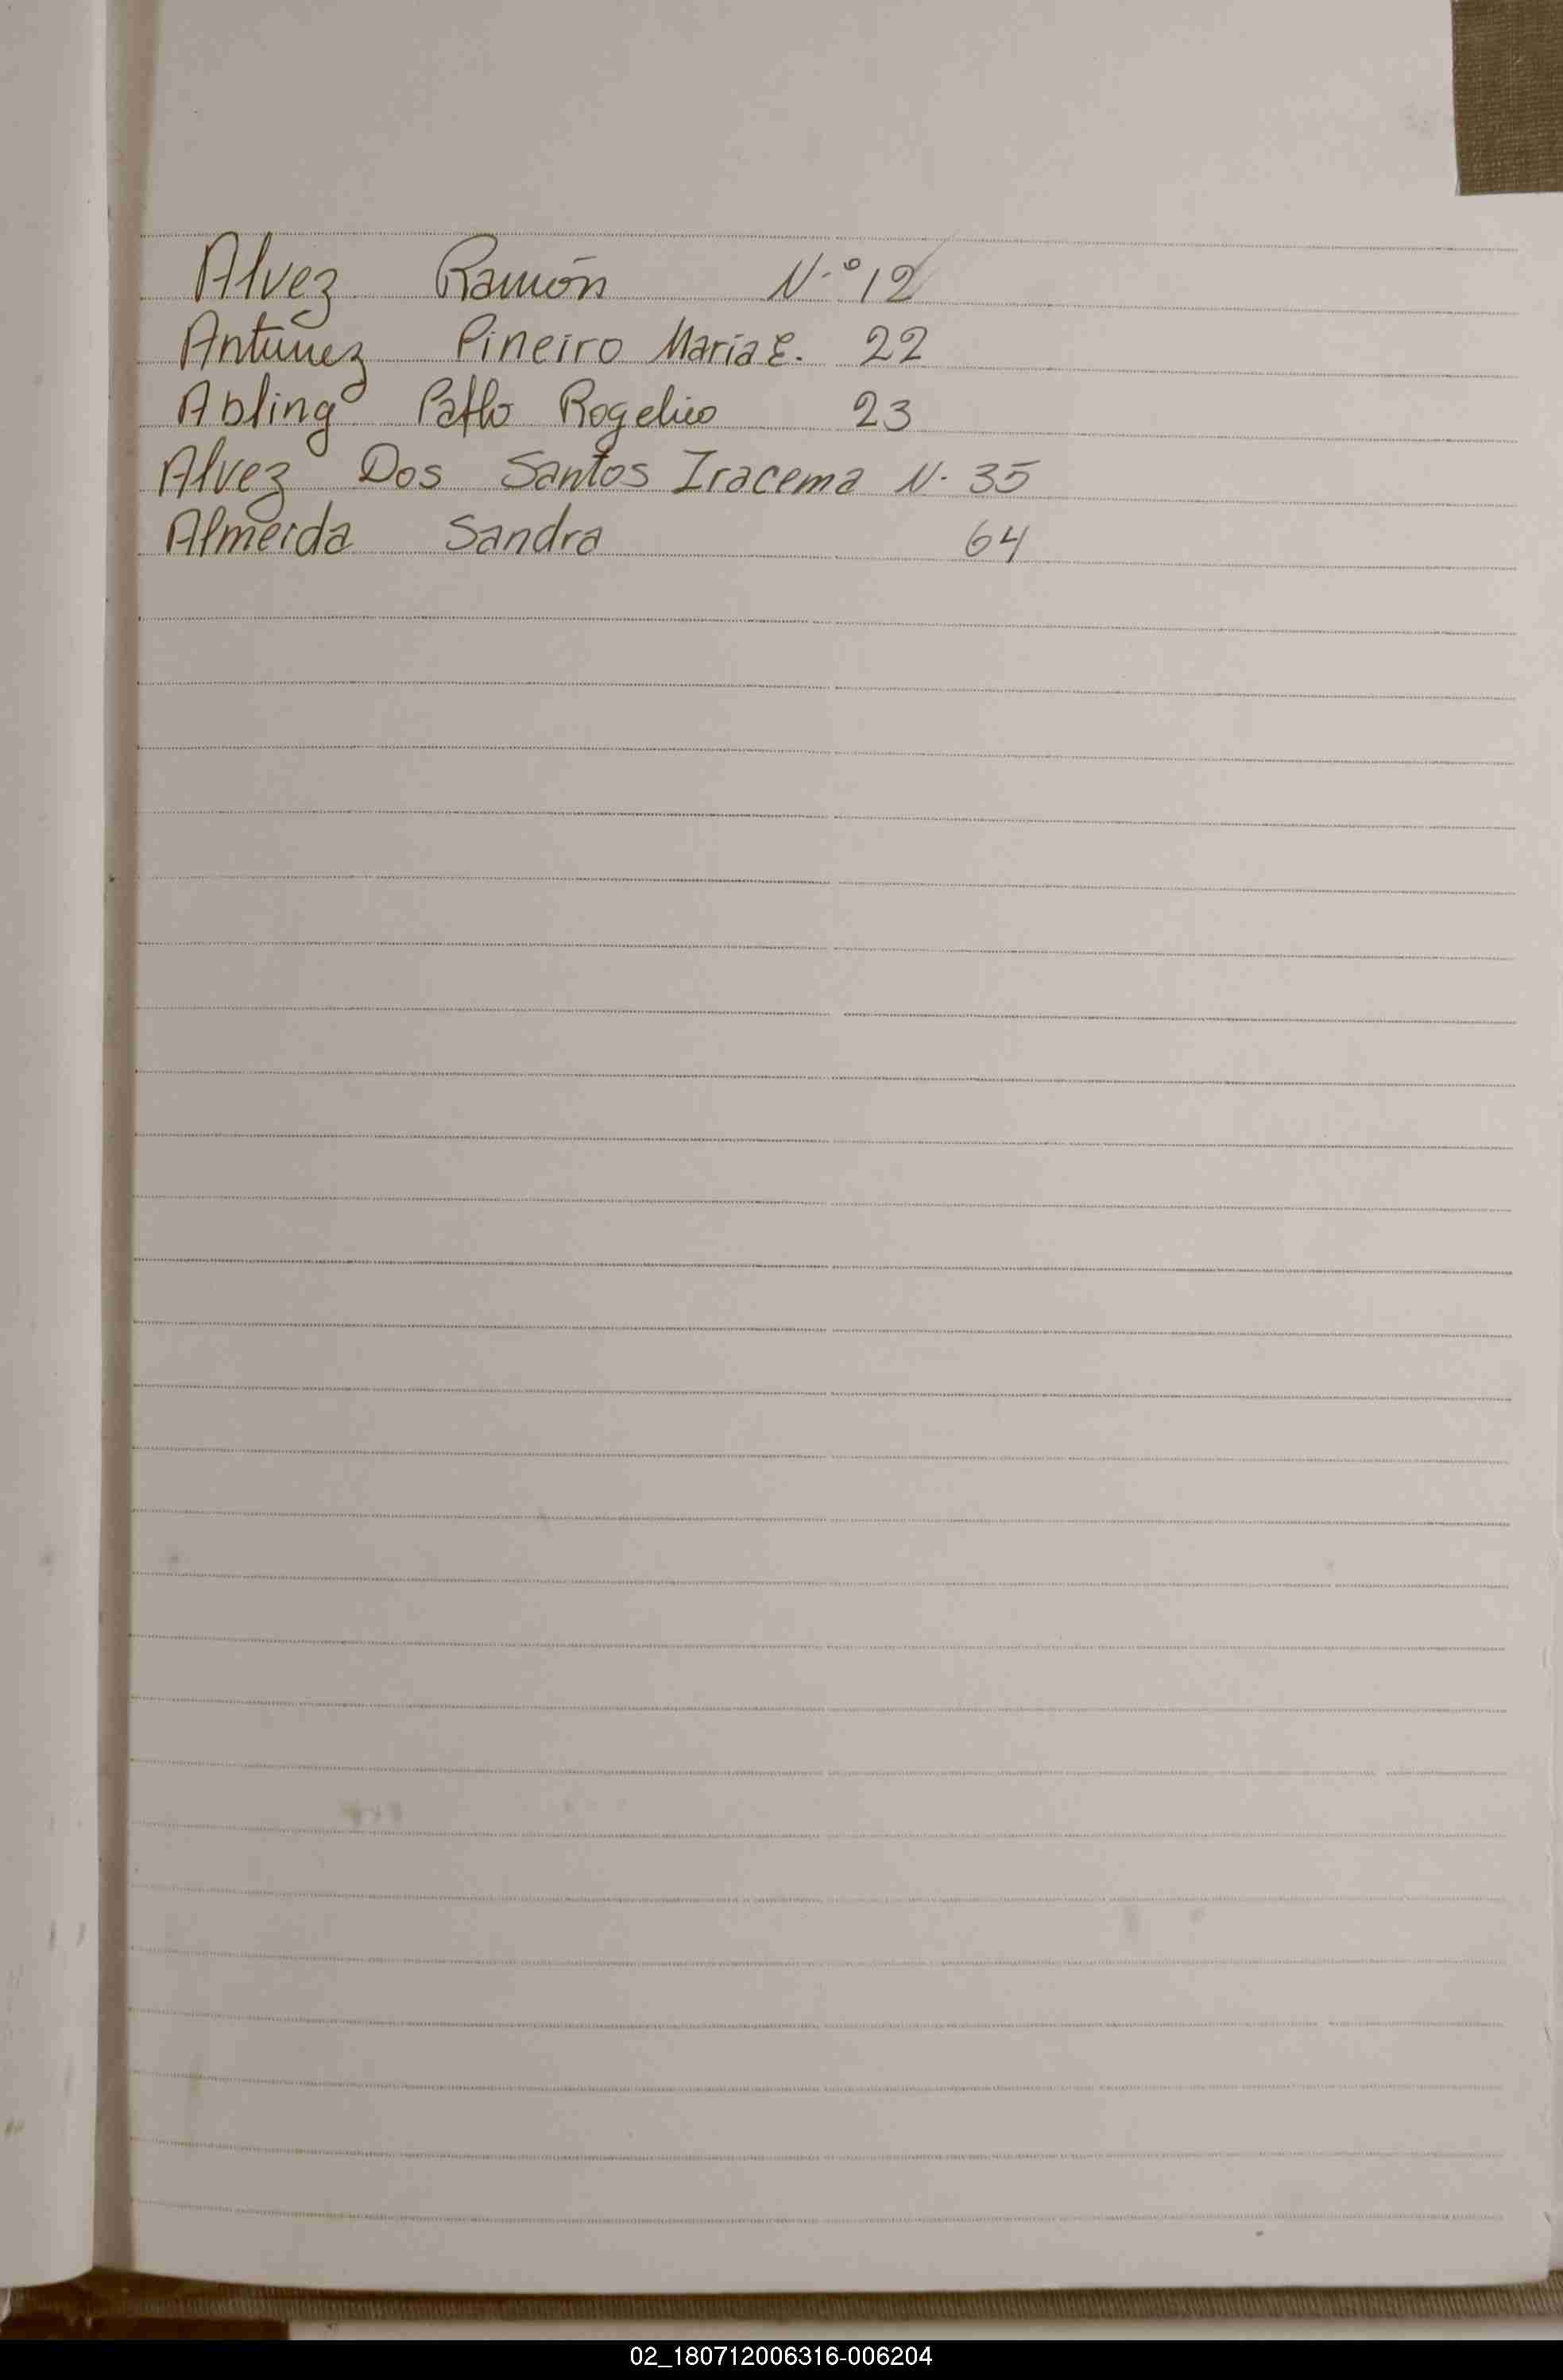 Alvez Ramón N.º 12
Antunez Pineiro Maria E. 22
Abling Pablo Rogelio 23
Alvez Dos Santos Iracema N. 35
Almeida Sandra 64
02_180712006316-006204